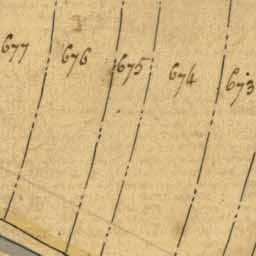 677 676 675 674 673